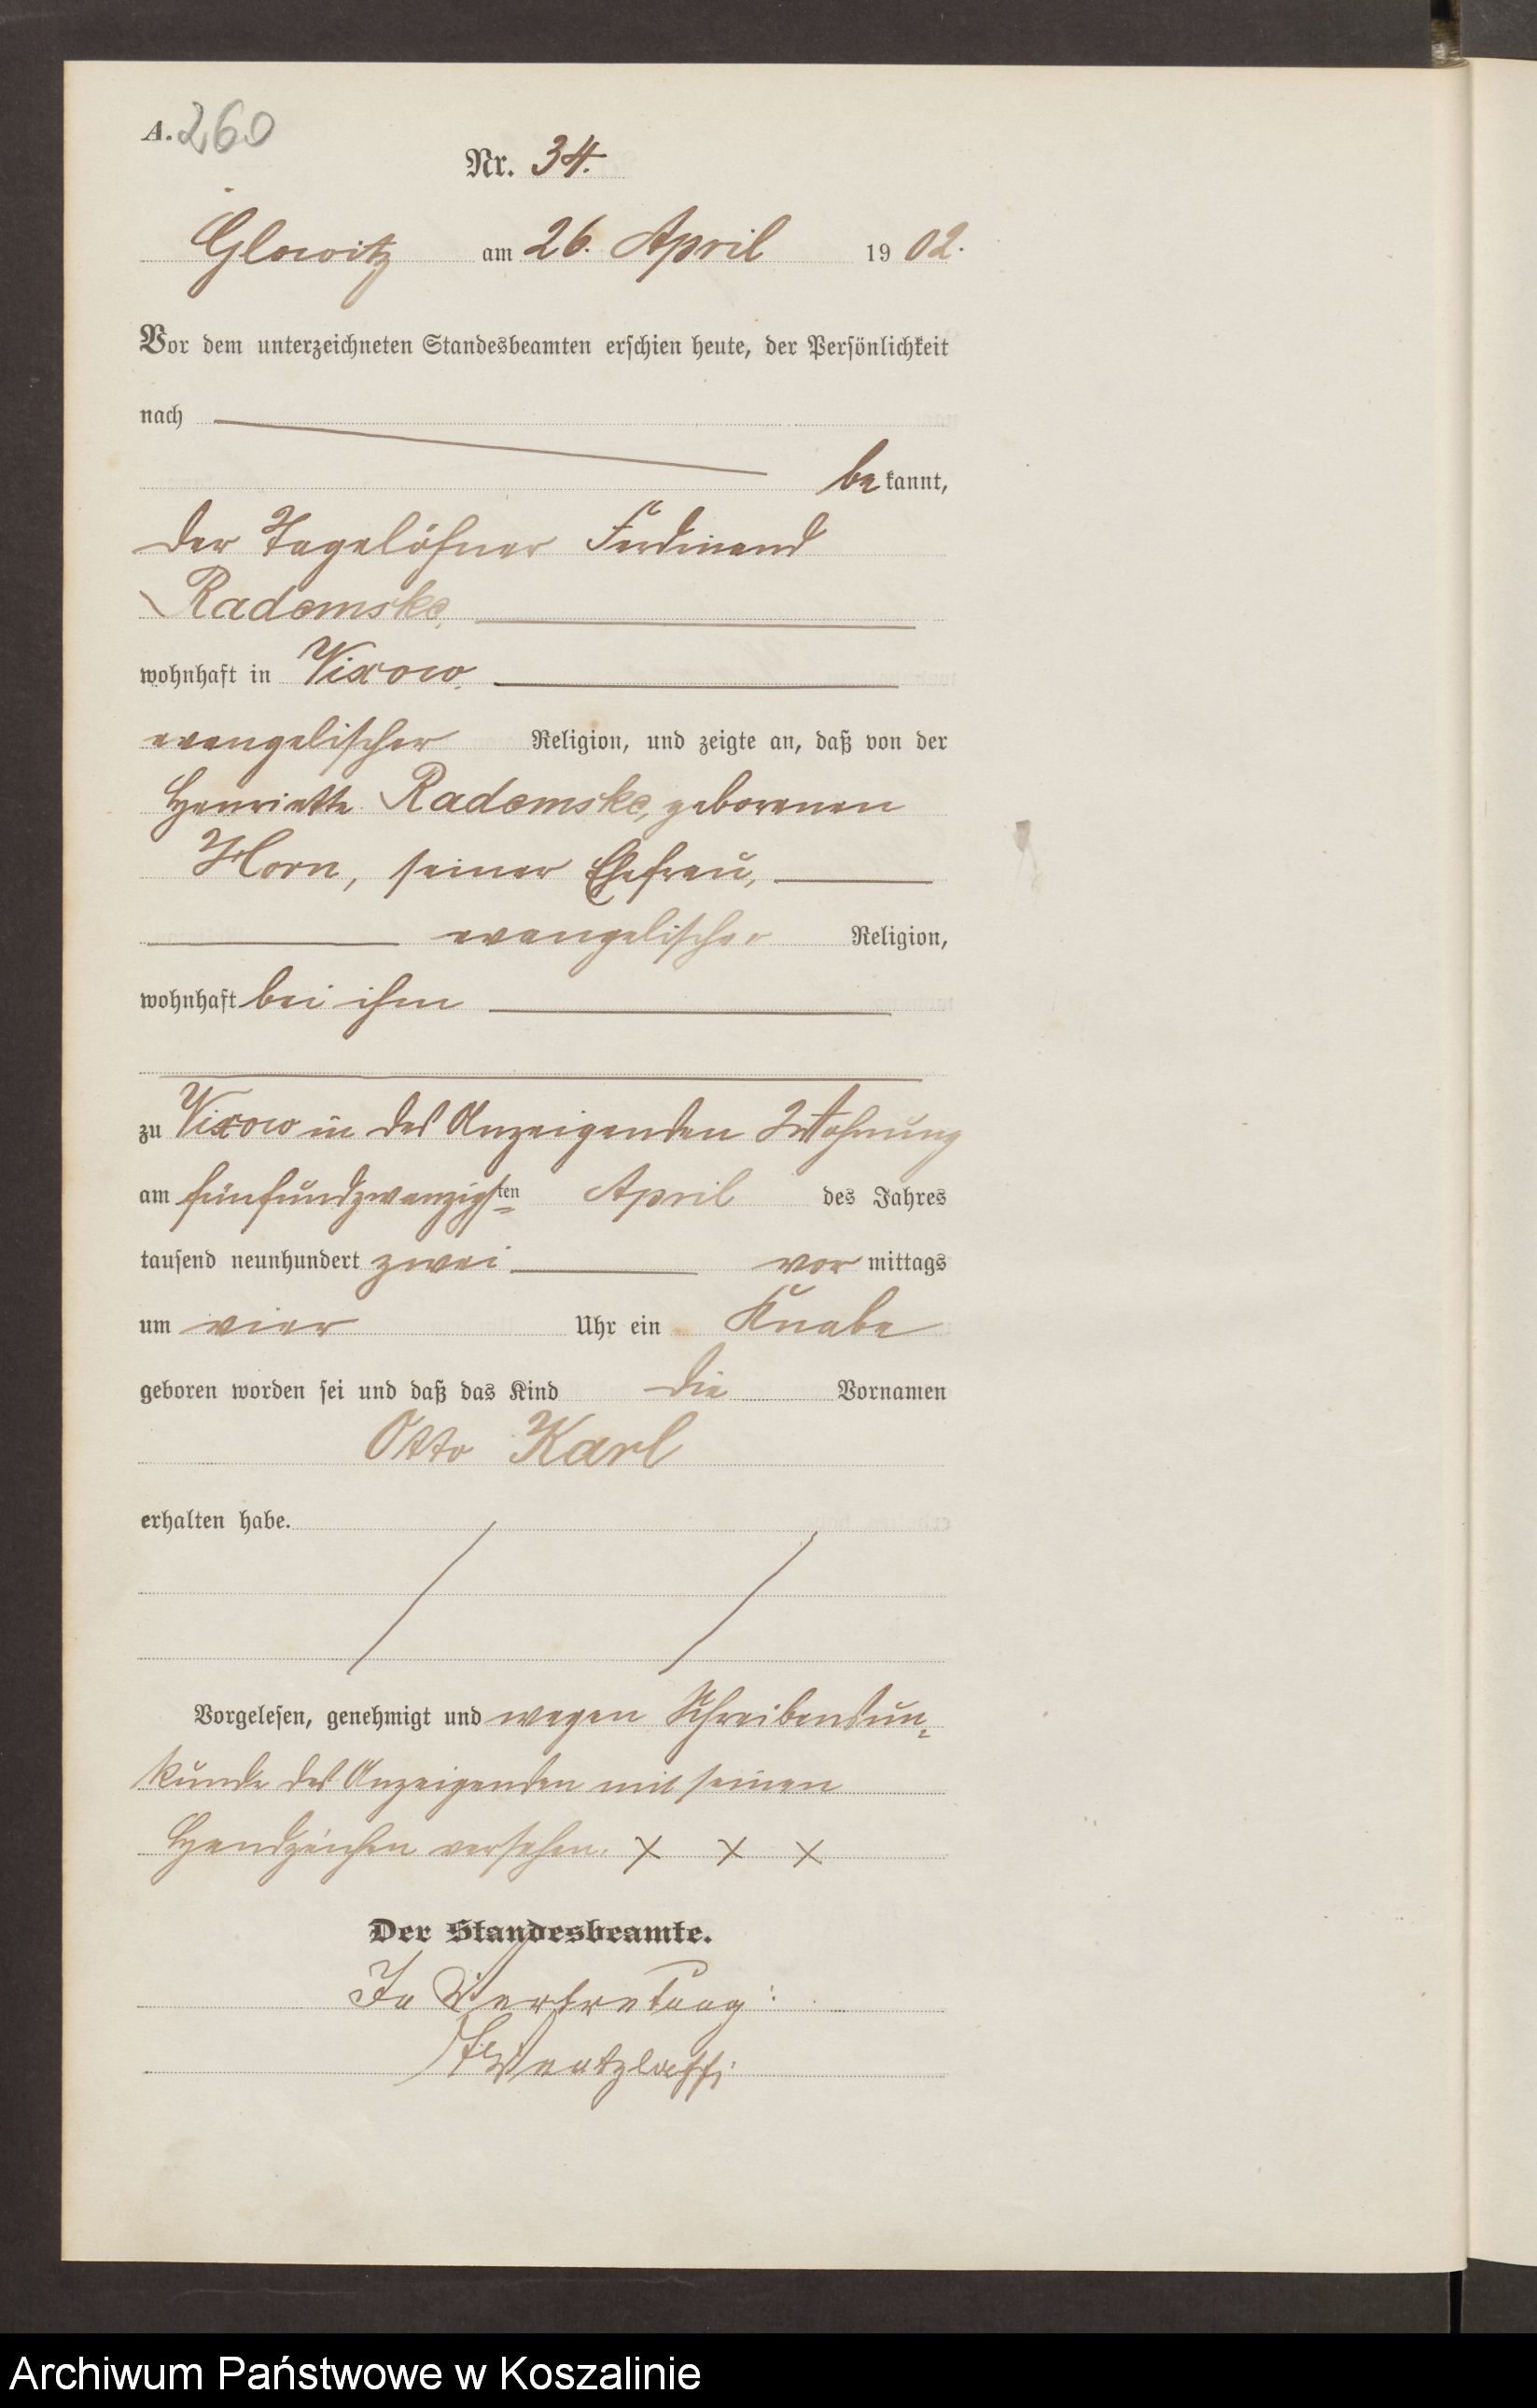 A. 260
Nr. 34.
Glowitz am 26. April 1902.
Vor dem unterzeichneten Standesbeamten erschien heute, der Persönlichkeit
nach
bekannt,
der Tagelöhner Ferdinand
Radomske
wohnhaft in Vixow
evangelischer Religion, und zeigte an, daß von der
Henriette Radomske, geborenen
Horn, seiner Ehefrau,
evangelischer Religion,
wohnhaft bei ihm
zu Vixow in des Anzeigenden Wohnung
am fünfundzwanzigsten April des Jahres
tausend neunhundert zwei vormittags
um vier Uhr ein Knabe
geboren worden sei und daß das Kind die Vornamen
Otto Karl
erhalten habe.
Vorgelesen, genehmigt und wegen Schreibensun-
kunde des Anzeigenden mit seinen
Handzeichen versehen. X X X
Der Standesbeamte.
In Vertretung:
Archiwum Państwowe w Koszalinie